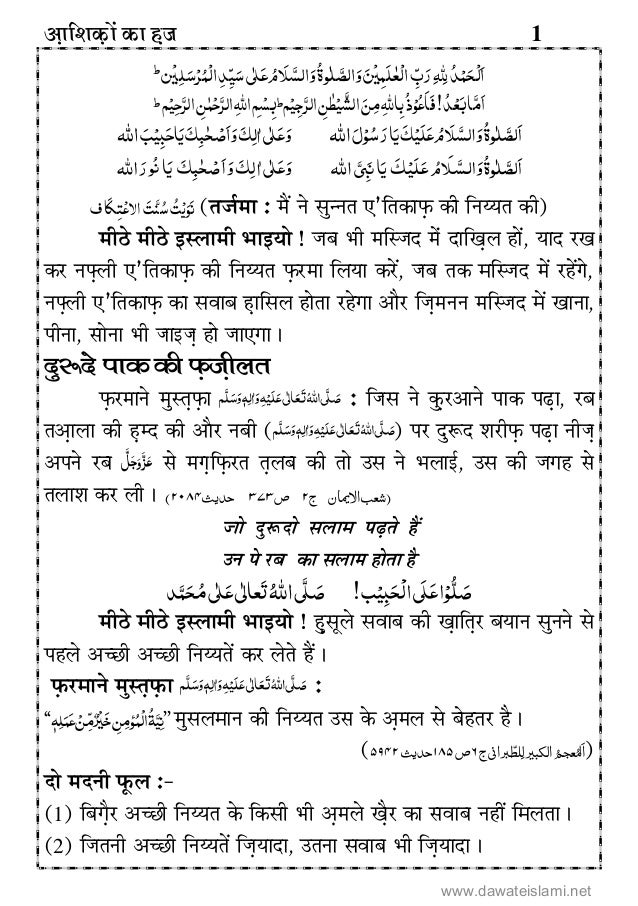 आ़शिक़ों का ह़ज 1
اَلْحَمْدُ لِلّٰهِ رَبِّ الْعٰلَمِيْنَ وَالصَّلٰوةُ وَالسَّلَامُ عَلٰى سَيِّدِ الْمُرْسَلِيْنَ ط
اَمَّا بَعْدُ! فَاَعُوْذُ بِاللّٰهِ مِنَ الشَّيْطٰنِ الرَّجِيْمِ ط بِسْمِ اللّٰهِ الرَّحْمٰنِ الرَّحِيْمِ ط
اَلصَّلٰوةُ وَالسَّلَامُ عَلَيْكَ يَا رَسُوْلَ اللّٰه وَعَلٰى اٰلِكَ وَاَصْحٰبِكَ يَا حَبِيْبَ اللّٰه
اَلصَّلٰوةُ وَالسَّلَامُ عَلَيْكَ يَا نَبِىَّ اللّٰه وَعَلٰى اٰلِكَ وَاَصْحٰبِكَ يَا نُوْرَ اللّٰه
نَوَيْتُ سُنَّتَ الْاِعْتِكَاف (तर्जमा : मैं ने सुन्नत ए'तिकाफ़ की निय्यत की)
मीठे मीठे इस्लामी भाइयो ! जब भी मस्जिद में दाख़िल हों, याद रख
कर नफ़्ली ए'तिकाफ़ की निय्यत फ़रमा लिया करें, जब तक मस्जिद में रहेंगे,
नफ़्ली ए'तिकाफ़ का सवाब ह़ासिल होता रहेगा और ज़िमनन मस्जिद में खाना,
पीना, सोना भी जाइज़ हो जाएगा ।
दुरूदे पाक की फ़ज़ीलत
फ़रमाने मुस्त़फ़ा صَلَّى اللّٰهُ تَعَالٰى عَلَيْهِ وَاٰلِهٖ وَسَلَّم : जिस ने क़ुरआने पाक पढ़ा, रब
तआ़ला की ह़म्द की और नबी (صَلَّى اللّٰهُ تَعَالٰى عَلَيْهِ وَاٰلِهٖ وَسَلَّم) पर दुरूद शरीफ़ पढ़ा नीज़
अपने रब عَزَّوَجَلَّ से मग़्फ़िरत त़लब की तो उस ने भलाई, उस की जगह से
तलाश कर ली । (شعب الایمان ج۲ ص۳۷۳ حدیث۲۰۸۴)
जो दुरूदो सलाम पढ़ते हैं
उन पे रब का सलाम होता है
صَلُّوْا عَلَى الْحَبِيْب! صَلَّى اللّٰهُ تَعَالٰى عَلٰى مُحَمَّد
मीठे मीठे इस्लामी भाइयो ! ह़ुसूले सवाब की ख़ात़िर बयान सुनने से
पहले अच्छी अच्छी निय्यतें कर लेते हैं ।
फ़रमाने मुस्त़फ़ा صَلَّى اللّٰهُ تَعَالٰى عَلَيْهِ وَاٰلِهٖ وَسَلَّم :
“نِيَّةُ الْمُؤْمِنِ خَيْرٌ مِّنْ عَمَلِهٖ” मुसलमान की निय्यत उस के अ़मल से बेहतर है ।
(اَلْمُعْجَمُ الکبیر لِلطَّبرانی ج۶ ص۱۸۵ حدیث ۵۹۴۲)
दो मदनी फूल :-
(1) बिग़ैर अच्छी निय्यत के किसी भी अ़मले ख़ैर का सवाब नहीं मिलता ।
(2) जितनी अच्छी निय्यतें ज़ियादा, उतना सवाब भी ज़ियादा ।
www.dawateislami.net